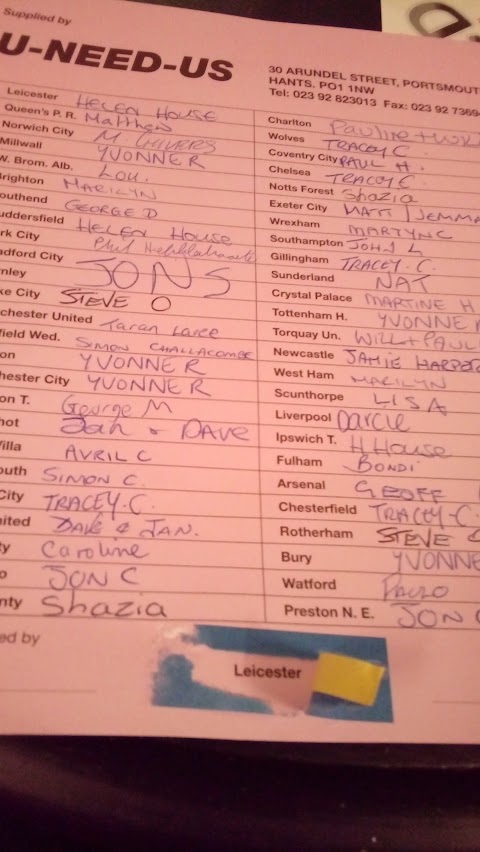 Supplied by
U-NEED-US
30 ARUNDEL STREET, PORTSMOUT
HANTS. PO1 1NW
Tel: 023 92 823013 Fax: 023 92 7369
Leicester HELEN HOUSE
Queen's P. R. Matthew
Norwich City M CHIVERS
Millwall YVONNE R
W. Brom. Alb. Lou.
righton MARILYN
outhend GEORGE D
uddersfield HELEN HOUSE
rk City Phil
adford City JON S
rnley
ke City STEVE O
chester United Taran
field Wed. SIMON CHALLACOMBE
on YVONNE R
hester City YVONNE R
on T. George M
hot Jan & DAVE
illa AVRIL C
outh SIMON C.
City TRACEY.C.
ited DAVE & JAN.
ty Caroline
o JON C
nty Shazia
Charlton Pauline +
Wolves TRACEY C.
Coventry City PAUL H.
Chelsea TRACEY C.
Notts Forest Shazia
Exeter City MATT / JEMMA
Wrexham MARTYN C
Southampton JOHN L
Gillingham TRACEY. C
Sunderland NAT
Crystal Palace MARTINE H
Tottenham H. YVONNE
Torquay Un. WILL + PAUL
Newcastle JAMIE HARPER
West Ham MARILYN
Scunthorpe LISA
Liverpool Darcie
Ipswich T. H House
Fulham BONDI
Arsenal GEOFF
Chesterfield TRACEY-C.
Rotherham STEVE
Bury YVONNE
Watford PAULO
Preston N. E. JON
ed by
Leicester